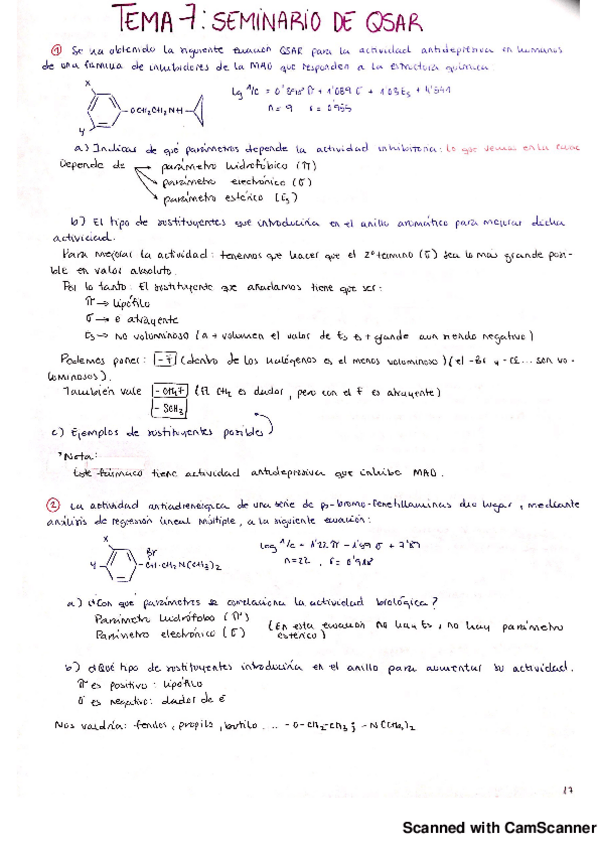 TEMA 7: SEMINARIO DE QSAR
① Se ha obtenido la siguiente ecuación QSAR para la actividad antidepresiva en humanos
de una familia de inhibidores de la MAO que responden a la estructura química:
X
Y
-OCH2CH2NH-
log 1/c = + 1'089 σ + 1'03 Es + 4'541
n = 9 r = 0'955
a) Indicar de qué parámetros depende la actividad inhibitoria: lo que vemos en la
Depende de → parámetro hidrofóbico (π)
parámetro electrónico (σ)
parámetro estérico (Es)
b) El tipo de sustituyentes que introduciría en el anillo aromático para mejorar dicha
actividad.
Para mejorar la actividad: tenemos que hacer que el 2º término (σ) sea lo más grande posi-
ble en valor absoluto.
Por lo tanto: El sustituyente que añadamos tiene que ser:
π → lipófilo
σ → e atrayente
Es → no voluminoso (a + volumen el valor de Es es + grande aun siendo negativo)
Podemos poner: -F (dentro de los halógenos es el menos voluminoso) (el -Br y -Cl... son vo-
luminosos).
También vale (El CH2 es dador, pero con el F es atrayente)
- SCH3
c) Ejemplos de sustituyentes posibles
*Nota:
Este fármaco tiene actividad antidepresiva que inhibe MAO.
② La actividad antiadrenérgica de una serie de β-bromo-fenetilaminas dio lugar, mediante
análisis de regresión lineal múltiple, a la siguiente ecuación:
X
Y
Br
-CH-CH2N(CH3)2
log 1/c = 1'22 π - 1'59 σ + 7'89
n=22, r= 0'918
a) ¿Con qué parámetros se correlaciona la actividad biológica?
Parámetro hidrófobo (π)
Parámetro electrónico (σ)
(En esta ecuación no hay Es, no hay parámetro
estérico)
b) ¿Qué tipo de sustituyentes introduciría en el anillo para aumentar su actividad.
π es positivo: lipófilo
σ es negativo: dador de e
Nos valdría: fenilos, propilo, butilo ... -O-CH2-CH3; -N(CH3)2
17
Scanned with CamScanner